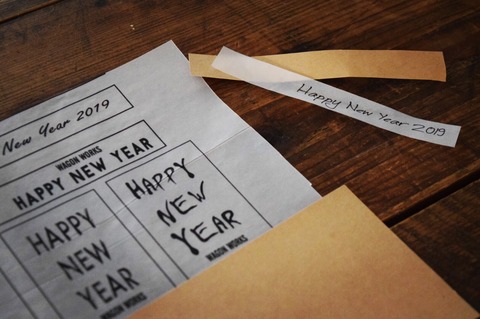 New Year 2019
WAGON WORKS
HAPPY NEW YEAR
HAPPY
NEW
YEAR
WAGON WORKS
HAPPY
NEW
YEAR
WAGON WORKS
Happy New Year 2019